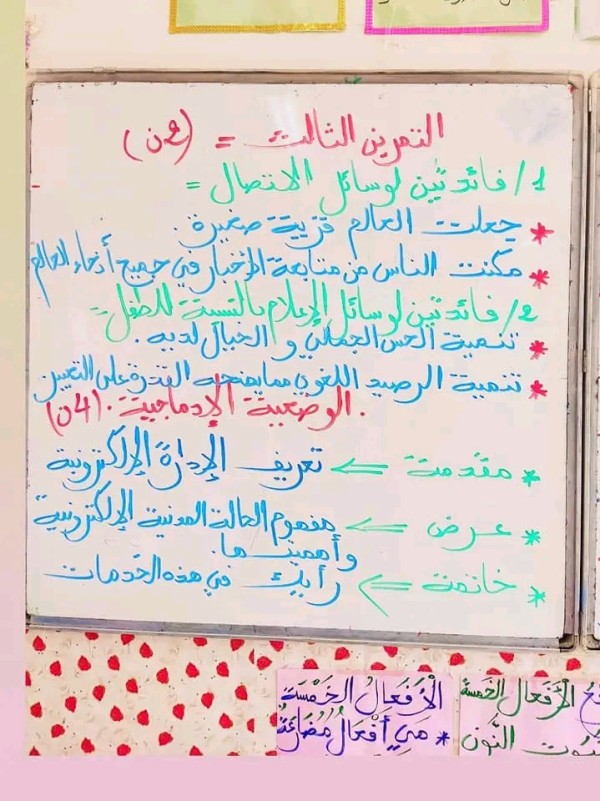 التمرين الثالث = (2ن)
1/ فائدتين لوسائل الاتصال =
* جعلت العالم قرية صغيرة.
* مكنت الناس من متابعة الأخبار في جميع أنحاء العالم
2/ فائدتين لوسائل الإعلام بالنسبة للطفل =
* تنمية الحس الجمالي و الخيال لديه.
* تنمية الرصيد اللغوي مما يمنحه القدرة على التعبير
الوضعية الإدماجية. (4ن)
* مقدمة ⇐ تعريف الإدارة الإلكترونية
* عرض ⇐ مفهوم الحالة المدنية الإلكترونية
وأهميتها.
* خاتمة ⇐ رأيك في هذه الخدمات
الأفعال الخمسة
الْأَفْعَالُ الْخَمْسَة
* هِيَ أَفْعَالٌ مُضَارِعَةٌ
النُّون